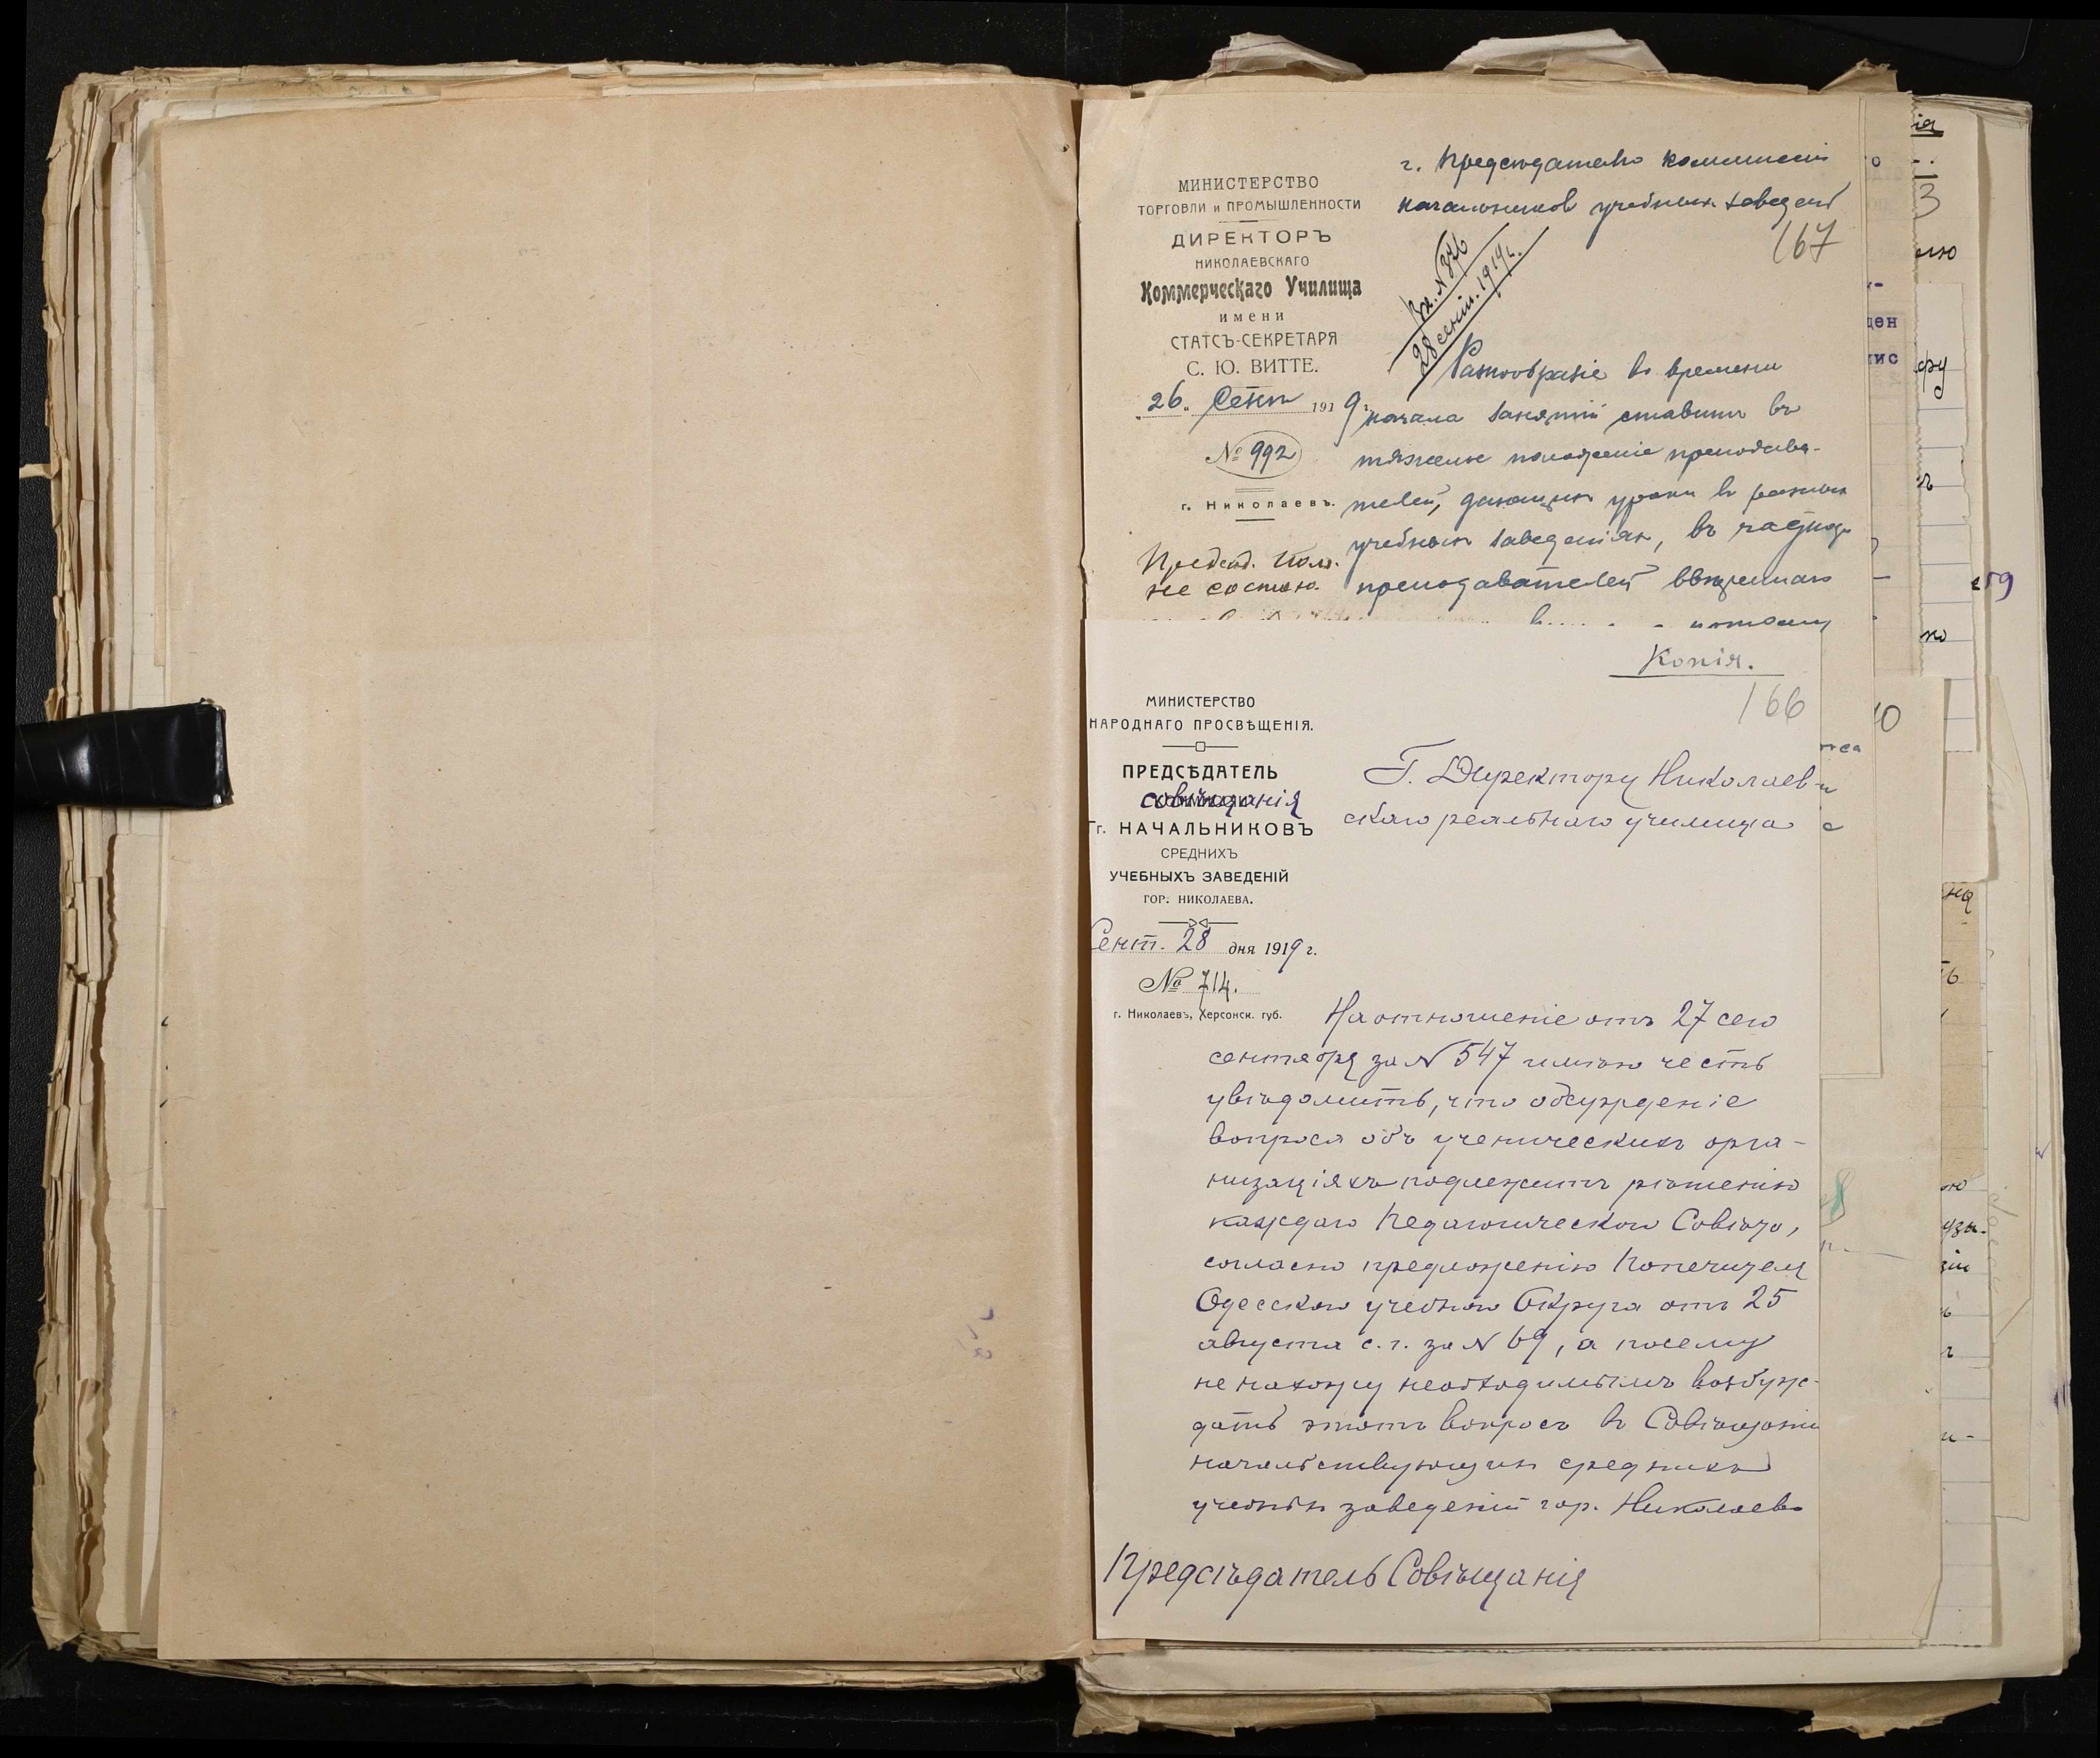 г. Председателю комиссіи
начальников учебных заведеній
167
МИНИСТЕРСТВО
ТОРГОВЛИ и ПРОМЫШЛЕННОСТИ
ДИРЕКТОРЪ
НИКОЛАЕВСКАГО
Коммерческаго Училища
имени
СТАТСЪ-СЕКРЕТАРЯ
С. Ю. ВИТТЕ.
„26„ Сент 1919 г.
№ 992
г. Николаевъ.
Вх. N 376
28 сент. 1919 г.
Разнообразіе во времени
начала занятій ставитъ въ
тяжелое положеніе преподава-
телей, дающих уроки в разных
учебных заведеніях, въ
преподавателей ввѣреннаго
Предсѣд.
не состою.
Копія.
166
МИНИСТЕРСТВО
НАРОДНАГО ПРОСВѢЩЕНІЯ.
ПРЕДСѢДАТЕЛЬ
совѣщанія
Гг. НАЧАЛЬНИКОВЪ
СРЕДНИХЪ
УЧЕБНЫХЪ ЗАВЕДЕНІЙ
ГОР. НИКОЛАЕВА.
Сент. 28 дня 1919 г.
№ 714.
г. Николаевъ, Херсонск. губ.
Г. Директору Николаев-
скаго реальнаго училища
На отношеніе отъ 27 сего
сентября за N 547 имѣю честь
увѣдомить, что обсужденіе
вопроса объ ученическихъ орга-
низаціяхъ подлежитъ рѣшенію
каждаго Педагогическаго Совѣта,
согласно предложенію Попечителя
Одесскаго учебнаго Округа отъ 25
августа с. г. за N 69, а посему
не нахожу необходимымъ возбуж-
дать этотъ вопросъ въ Совѣщаніи
начальствующих среднихъ
учебных заведеній гор. Николаева
Предсѣдатель Совѣщанія